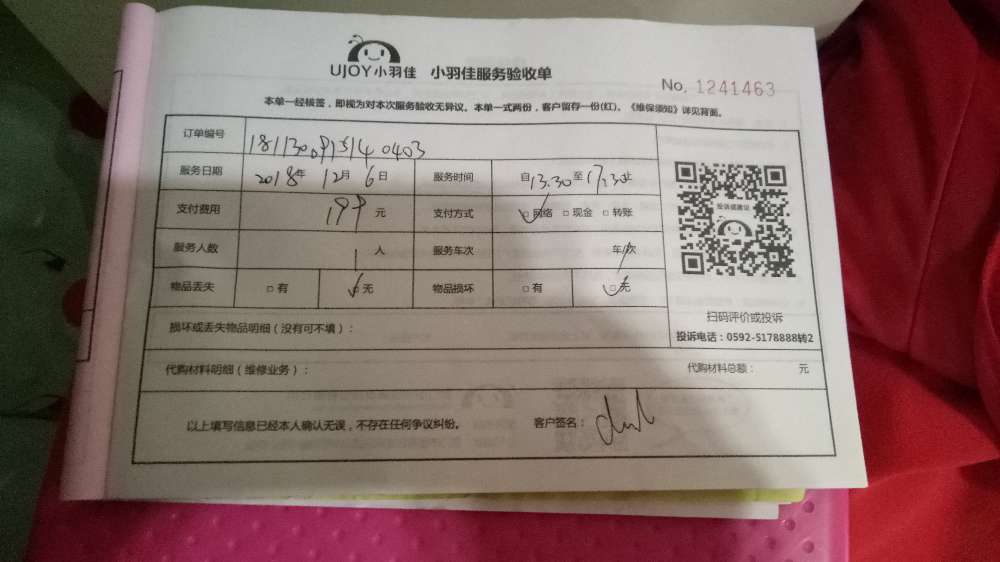 UJOY小羽佳 小羽佳服务验收单
No. 1241463
本单一经核签，即视为对本次服务验收无异议。本单一式两份，客户留存一份(红)。《维保须知》详见背面。
订单编号
服务日期 2018年 12月 6日 服务时间 自13.30至17.30止
支付费用 199元 支付方式 ☑网络 □现金 □转账
服务人数 1人 服务车次 车/次
物品丢失 □有 ☑无 物品损坏 □有 ☑无
投诉或建议
扫码评价或投诉
投诉电话：0592-5178888转2
损坏或丢失物品明细（没有可不填）：
代购材料明细（维修业务）： 代购材料总额： 元
以上填写信息已经本人确认无误，不存在任何争议纠纷。 客户签名：